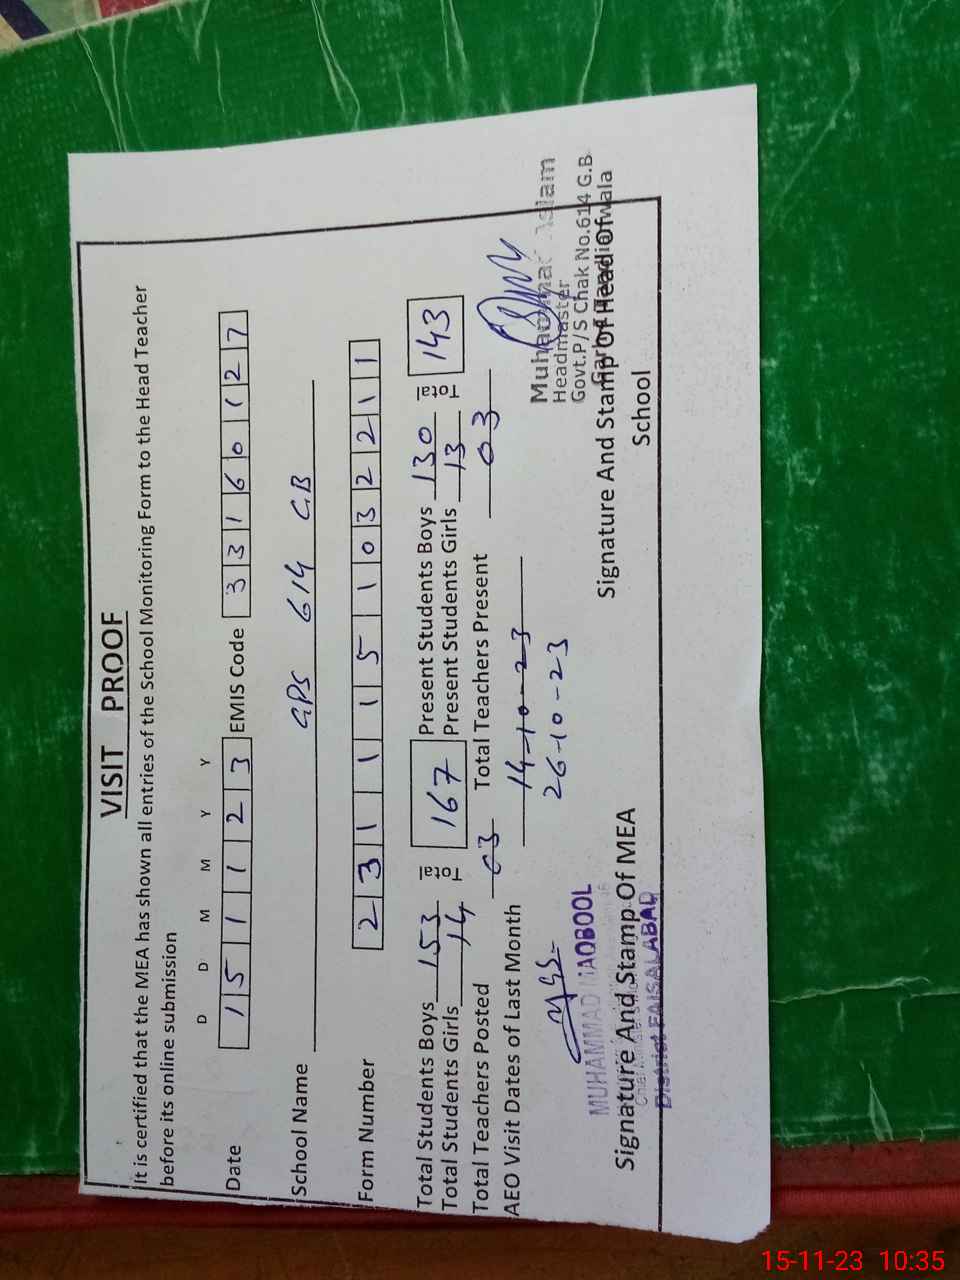 VISIT PROOF
It is certified that the MEA has shown all entries of the School Monitoring Form to the Head Teacher
before its online submission
D D M M Y Y
Date 1 5 1 1 2 3 EMIS Code 3 3 1 6 0 1 2 7
School Name GPS 614 GB
Form Number 2 3 1 1 1 5 1 0 3 2 2 1 1
Total Students Boys 153 Total 167 Present Students Boys 130 Total 143
Total Students Girls 14 Present Students Girls 13
Total Teachers Posted 03 Total Teachers Present 03
AEO Visit Dates of Last Month 14-10-23
26-10-23
MUHAMMAD MAQBOOL
District FAISALABAD
Signature And Stamp Of MEA
Muhammad Aslam
Headmaster
Govt.P/S Chak No.614 G.B
Signature And Stamp Of Head Of
School
15-11-23 10:35